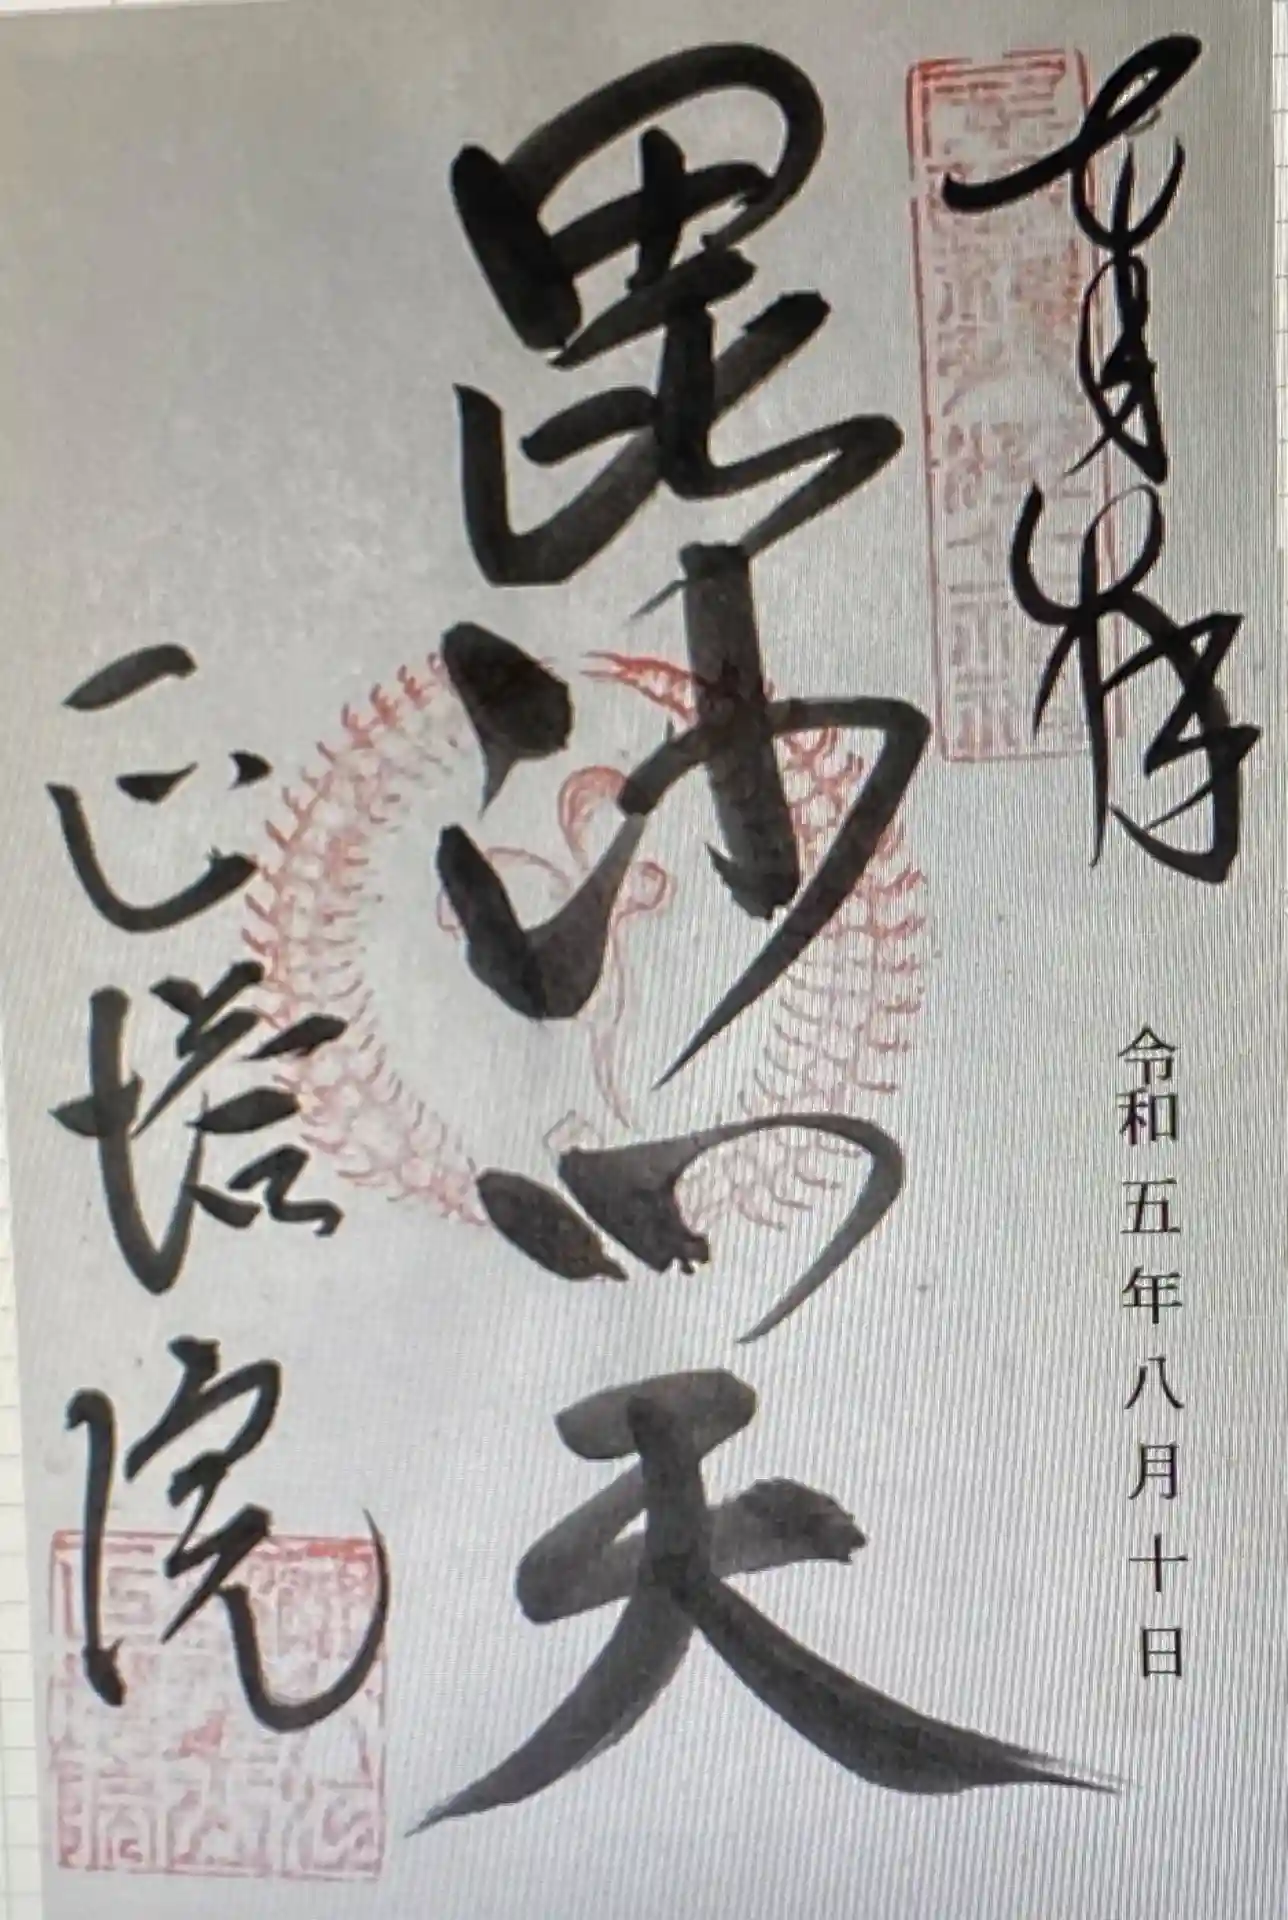 奉拝
令和五年八月十日
毘沙門天
正塔院